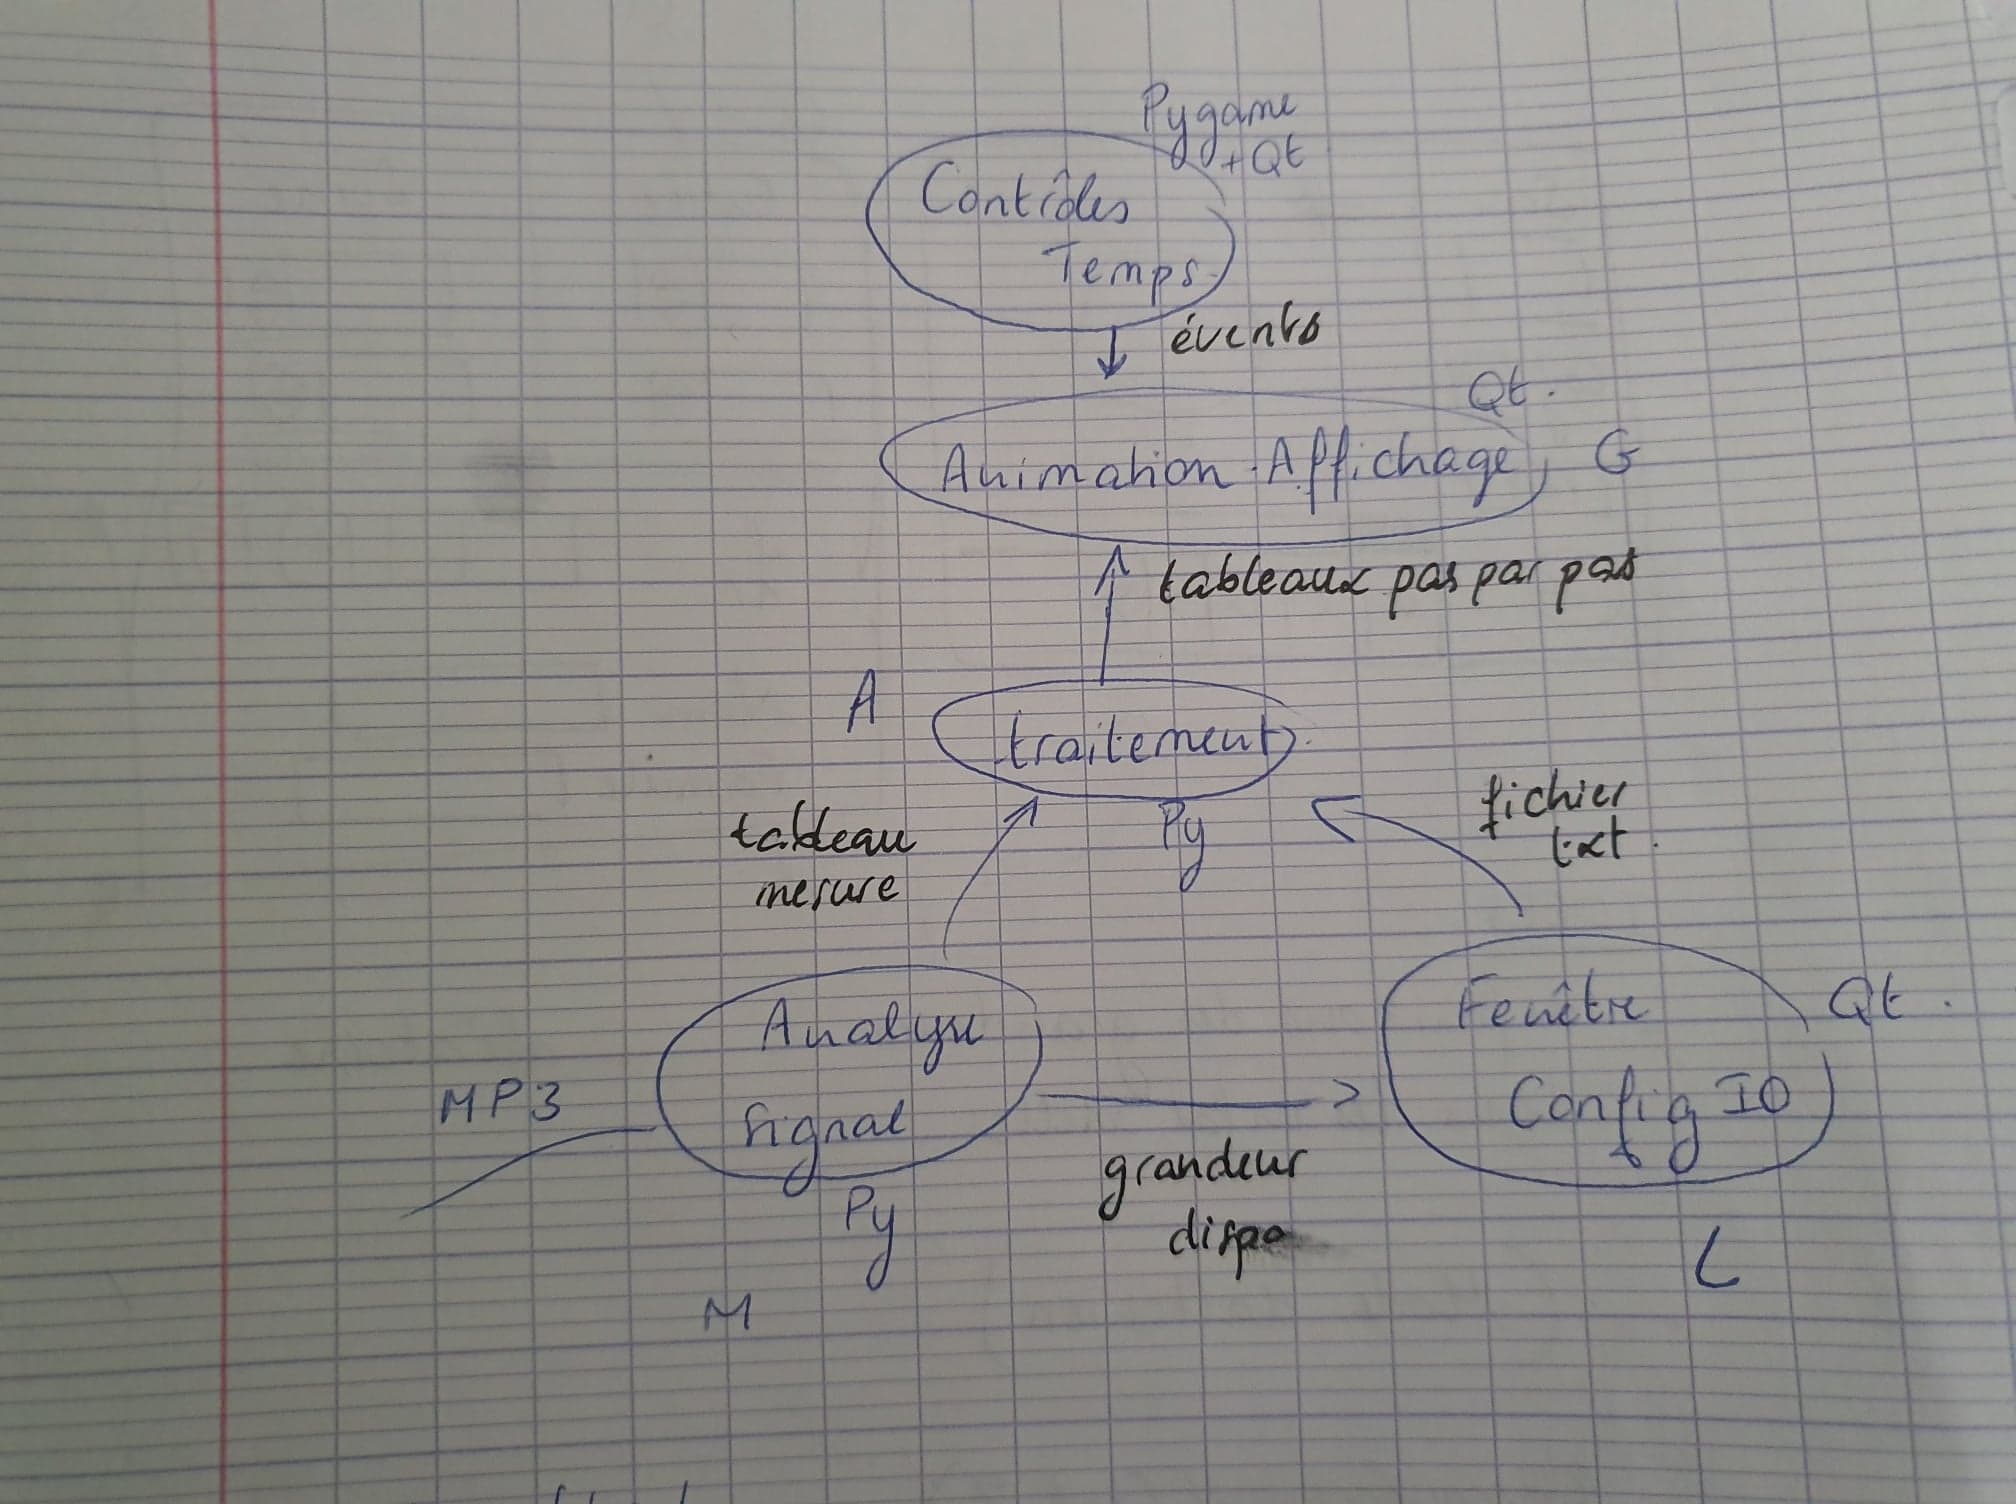 Pygame
+Qt
Contrôles
Temps
évents
Qt.
Animation Affichage
G
tableaux pas par pas
A
traitement
Py
tableau
mesure
fichier
txt.
Analyse
Signal
MP3
Py
M
grandeur
dispo
Fenêtre
Config IO
Qt.
L